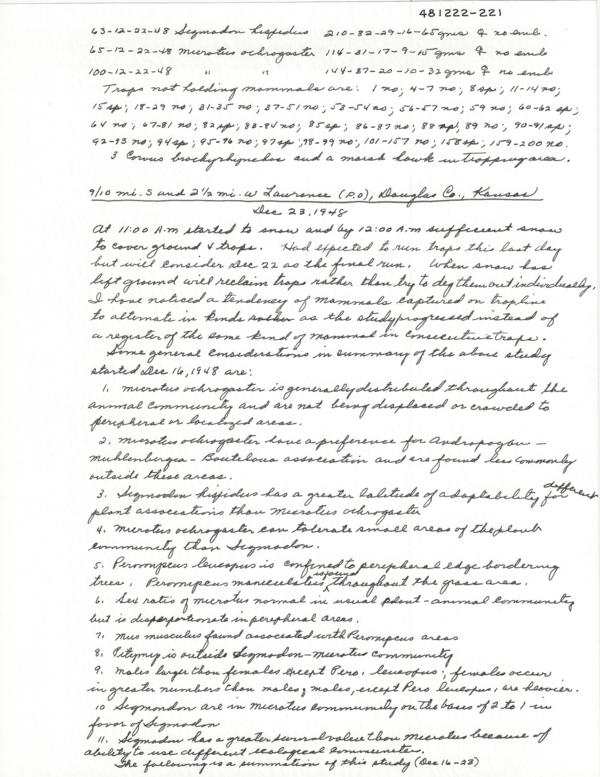 481222-221
63-12-22-48 Sigmodon hispidus 210-82-29-16-65gms ♀ no emb
65-12-22-48 Microtus ochrogaster 114-31-17-9-15gms ♀ no emb
100-12-22-48 " " 144-37-20-10-32gms ♀ no emb
Traps not holding mammals are: 1 no; 4-7 no; 8sp; 11-14 no;
15sp; 18-29 no; 31-35 no; 37-51 no; 53-54 no; 56-57 no; 59 no; 60-62 sp;
64 no; 67-81 no; 82sp; 83-84 no; 85sp; 86-87 no; 88 sp; 89 no; 90-91 sp;
92-93 no; 94sp; 95-96 no; 97sp; 98-99 no; 101-157 no; 158sp; 159-200 no.
3 Corvus brachyrhynchos and a marsh hawk in trapping area.
9/10 mi. S and 2 1/2 mi. W Lawrence (P.O), Douglas Co., Kansas
Dec 23, 1948
At 11:00 A.m started to snow and by 12:00 A.m sufficient snow
to cover ground & traps. Had expected to run traps this last day
but will consider Dec 22 as the final run. When snow has
left ground will reclaim traps rather than try to deg them out individually.
I have noticed a tendency of mammals captured on trapline
to alternate in kinds rather as the study progressed instead of
a register of the same kind of mammal in consecutive traps.
Some general considerations in summary of the above study
started Dec 16, 1948 are:
1. microtus ochrogaster is generally distributed throughout the
animal community and are not being displaced or crowded to
peripheral or localized areas.
2. microtus ochrogaster have a preference for Andropogon -
muhlenbergia - Bouteloua association and are found less commonly
outside these areas.
3. Sigmodon hispidus has a greater latitude of adaptability for different
plant associations than microtus ochrogaster
4. microtus ochrogaster can tolerate small areas of the plant
community than Sigmodon.
5. Peromyscus leucopus is confined to peripheral edge bordering
trees. Peromyscus maniculatus is found throughout the grass area.
6. Sex ratio of microtus normal in usual plant-animal community
but is disproportionate in peripheral areas.
7. mus musculus found associated with Peromyscus areas
8. Pitymys is outside Sigmodon-microtus community
9. males larger than females except Pero. leucopus; females occur
in greater numbers than males; males, except Pero leucopus, are heavier.
10 Sigmondon are in microtus community on the bases of 2 to 1 in
favor of Sigmodon
11. Sigmodon has a greater survival value than microtus because of
ability to use different ecological communities.
The following is a summation of this study (Dec 16-23)